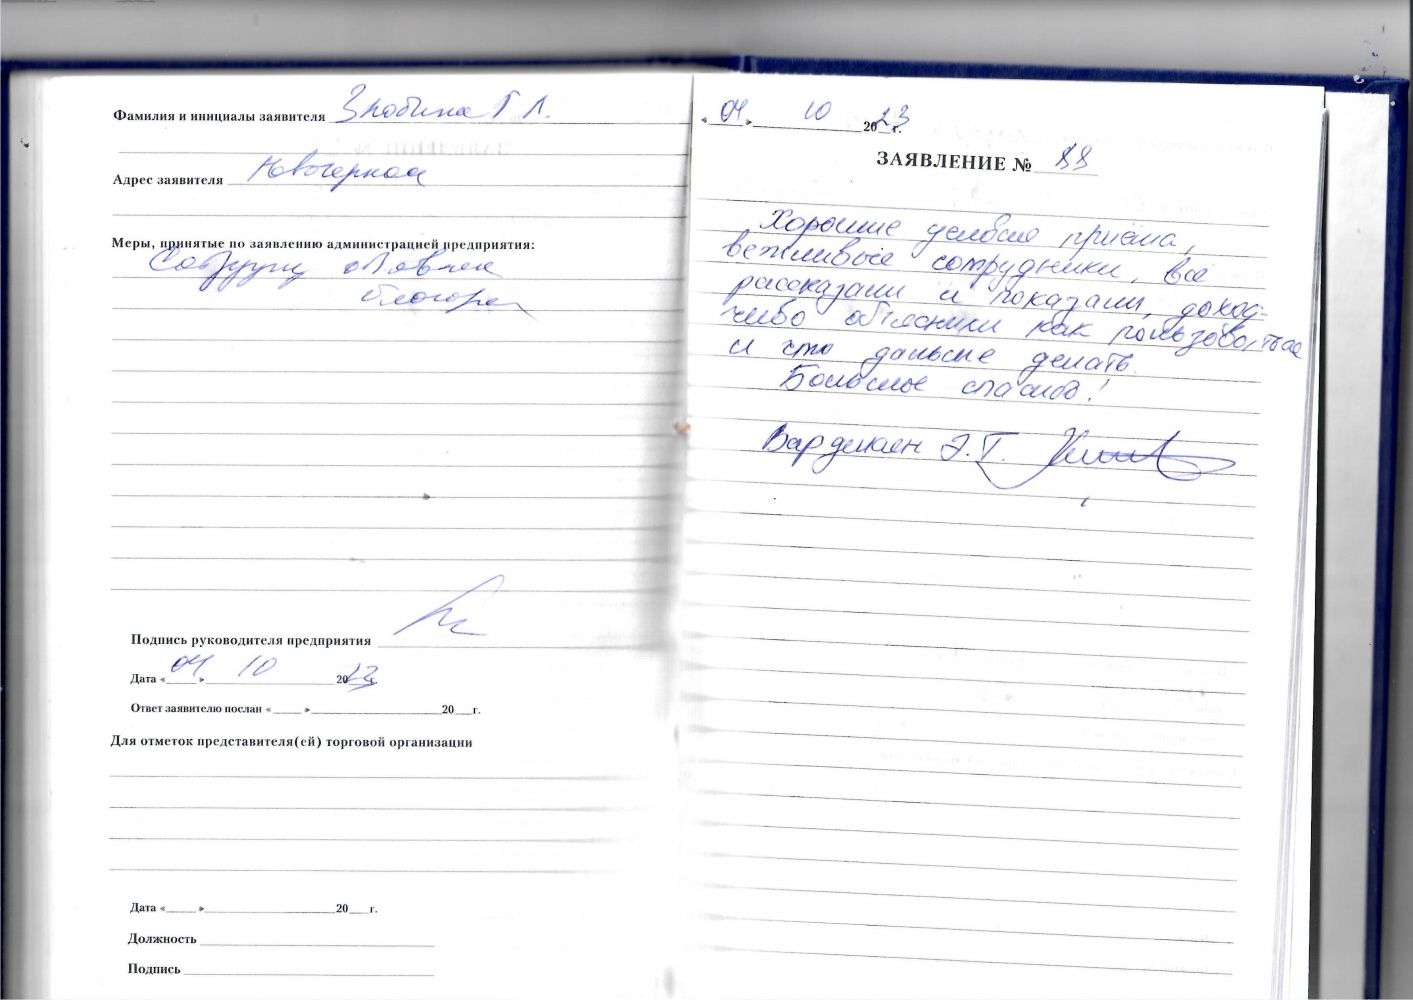 Фамилия и инициалы заявителя Злобина Г Л.
Адрес заявителя
Меры, принятые по заявлению администрацией предприятия:
Подпись руководителя предприятия
Дата « 04 » 10 20 23 г.
Ответ заявителю послан « » 20 г.
Для отметок представителя(ей) торговой организации
Дата « » 20 г.
Должность
Подпись
« 04 » 10 20 23 г.
ЗАЯВЛЕНИЕ № 88
Хорошие условия приема,
вежливые сотрудники, все
рассказали и показали, доход-
чиво объяснили как пользоваться
и что дальше делать.
Большое спасибо!
Варделян Э.Г.